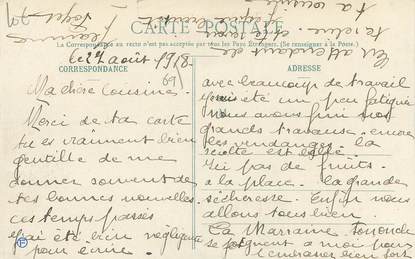 CARTE POSTALE
La Correspondance au recto n'est pas acceptée par tous les Pays Étrangers. (Se renseigner à la Poste.)
CORRESPONDANCE
le 27 août 1918.
Ma chère Cousine.
Merci de ta carte
tu es vraiment bien
gentille de me
donner souvent de
tes bonnes nouvelles
ces temps passés
j'ai été bien négligente
pour écrire.
ADRESSE
avec beaucoup de travail
j'ai été un peu fatiguée
nous avons fini nos
grands travaux. encore
les vendanges. la
récolte est
Ici pas de fruits.
a la place. la grande
sécheresse. Enfin nous
allons tous bien.
La Marraine Tonton
se joignent a moi pour
t'embrasser bien fort
ta cousine
Jeanne